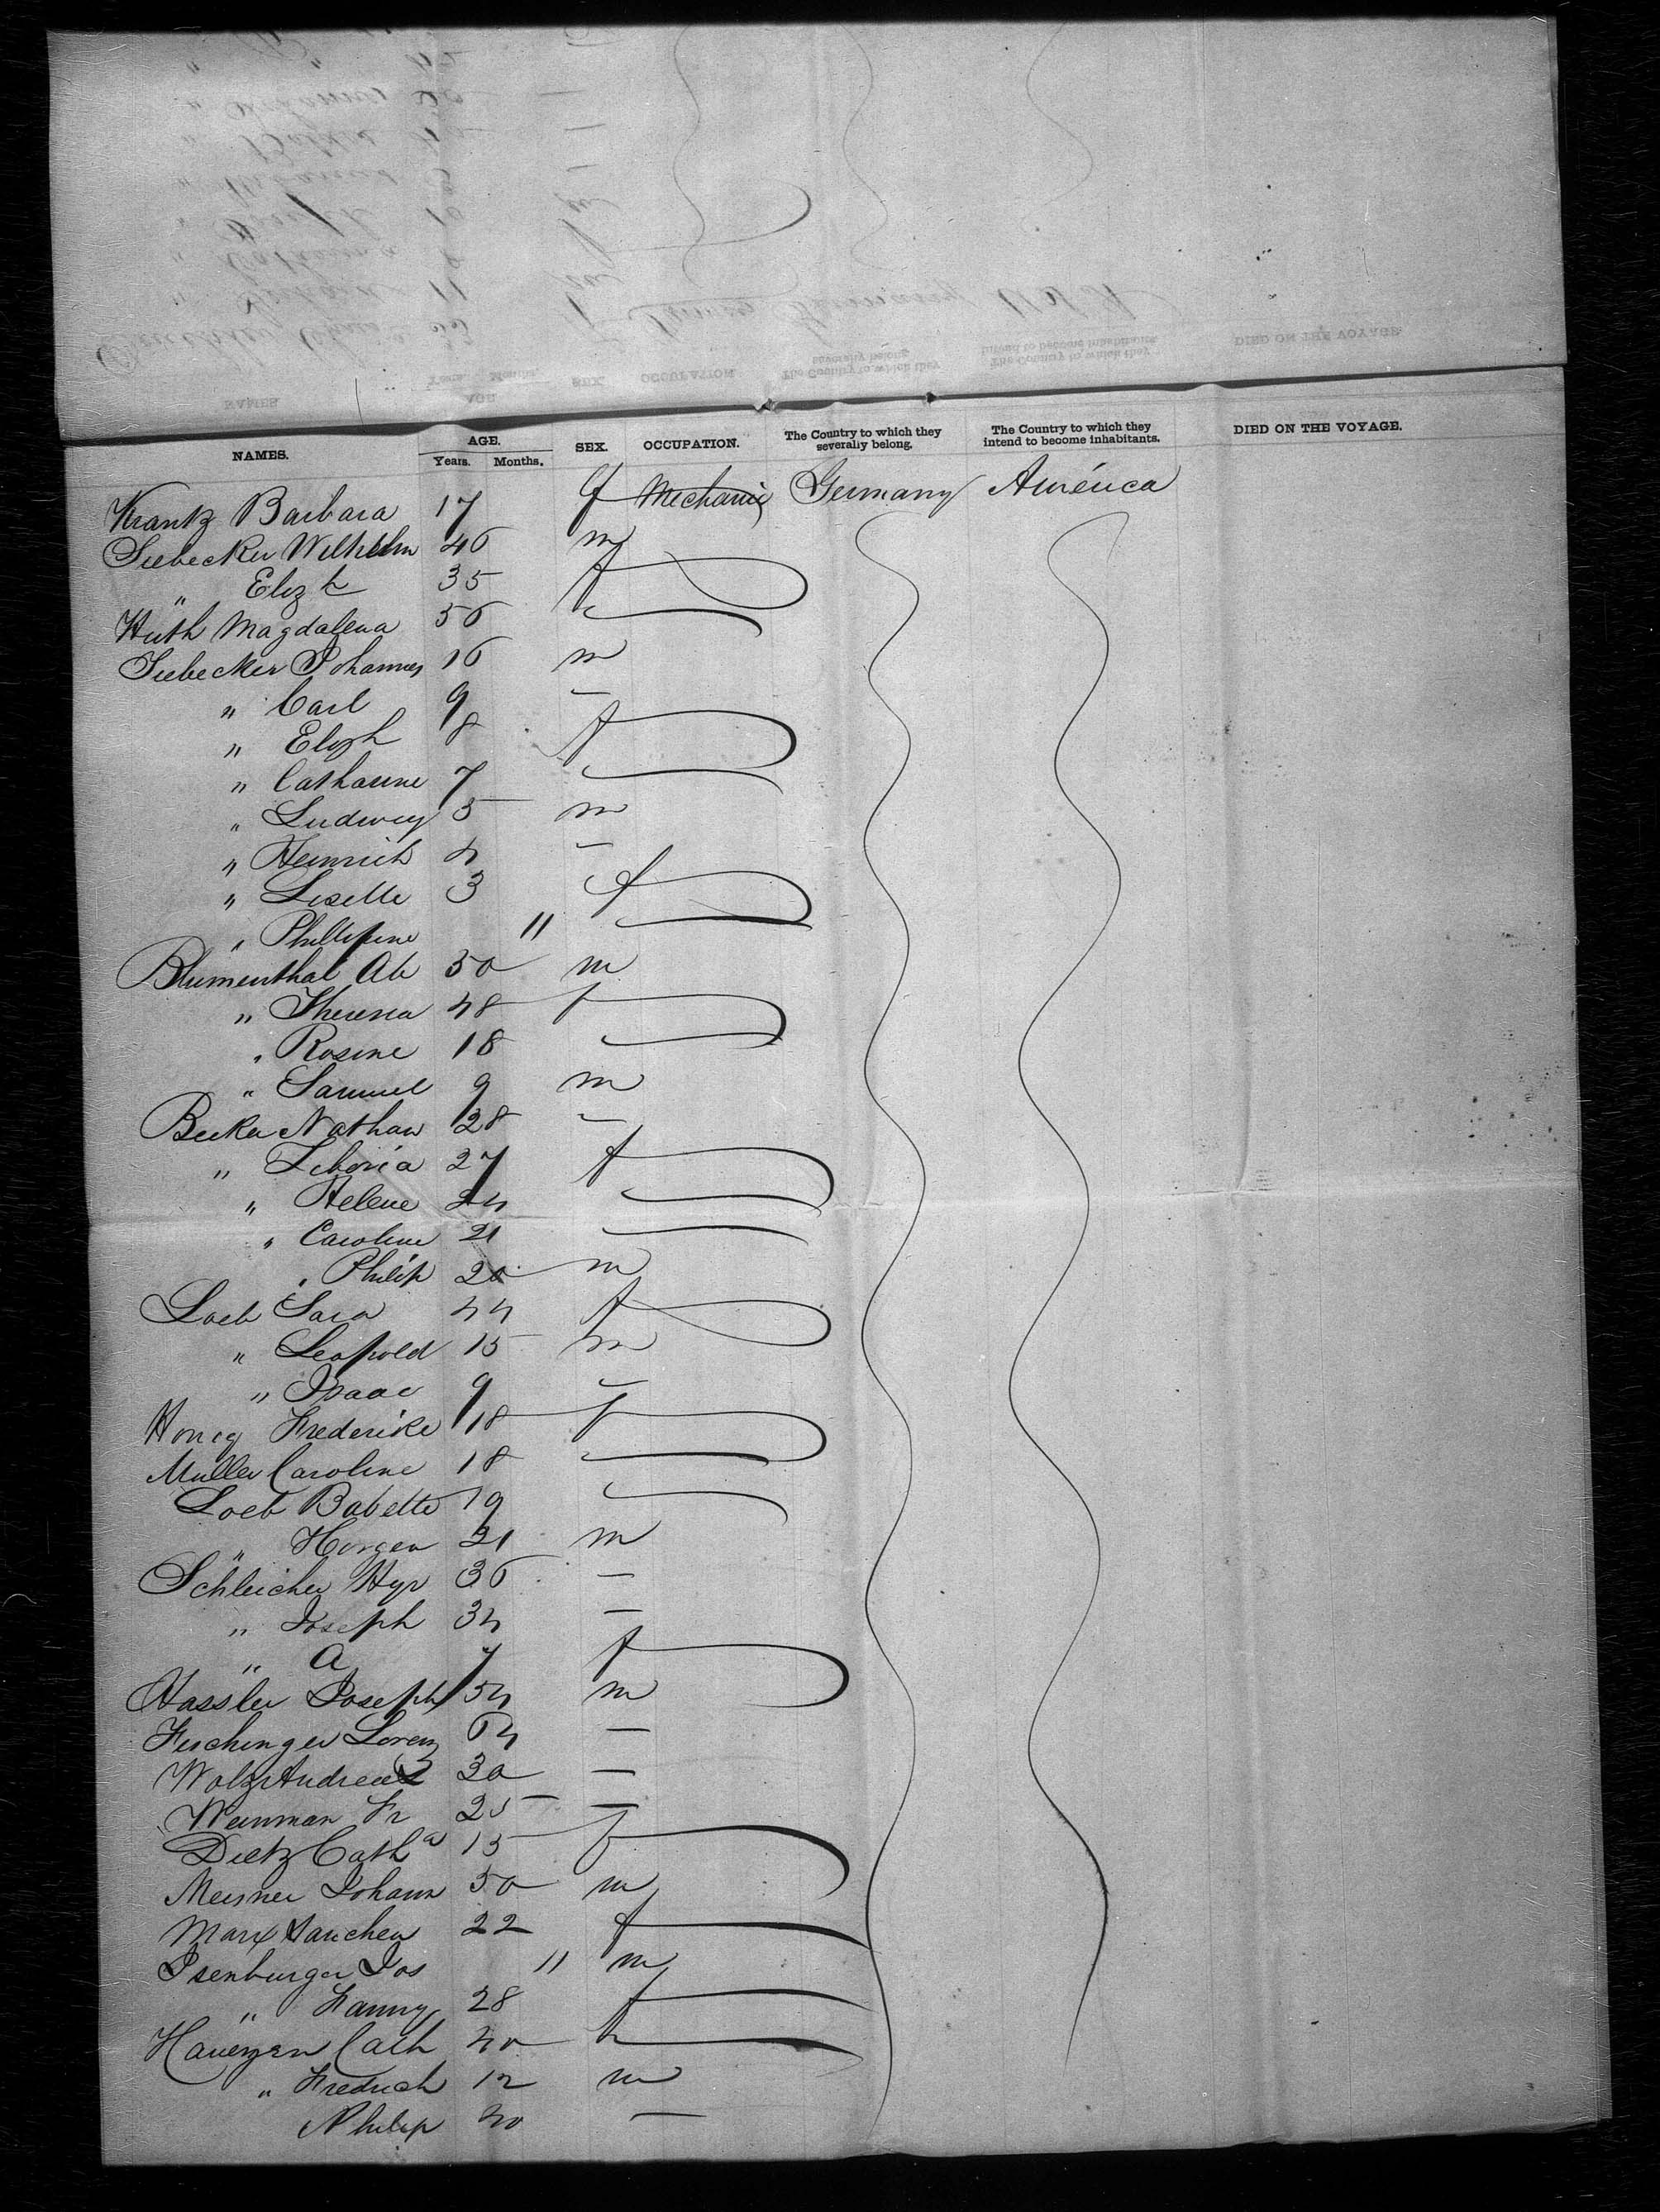 NAMES. AGE. Years. Months. SEX. OCCUPATION. The Country to which they severally belong. The Country to which they intend to become inhabitants. DIED ON THE VOYAGE.
Krantz Barbara 17 f Mechanic Germany America
Siebecker Wilhelm 46 m
" Elizh 35 f
Huth Magdalena 56
Siebecker Johannes 16 m
" Carl 9 -
" Elizh 8 f
" Catharine 7
" Ludwig 5 m
" Heinrich 4 -
" Liselle 3 f
" Phillipine 11
Blumenthal Ab 50 m
" Theresia 48 f
" Rosine 18
" Samuel 9 m
Becker Nathan 28 -
" 27 f
" Helene 24
" Caroline 21
" Philip 20 m
Loeb Sara 44 f
" Leopold 15 m
" Isaac 9 -
Honig Frederike 18 f
Muller Caroline 18
Loeb Babette 19
" 21 m
Schleicher 36 -
" Joseph 34 -
" A 7 f
Hassler Joseph 54 m
Lorenz 64 -
Wolz Andreas 30 -
Weinman Fr 25 -
Dietz Catha 15 f
Meisner Johann 50 m
Marx 22 f
Isenburger Jos 11 m
" Fanny 28 f
Cath 40 f
" Fredrich 12 m
Philip 40 -